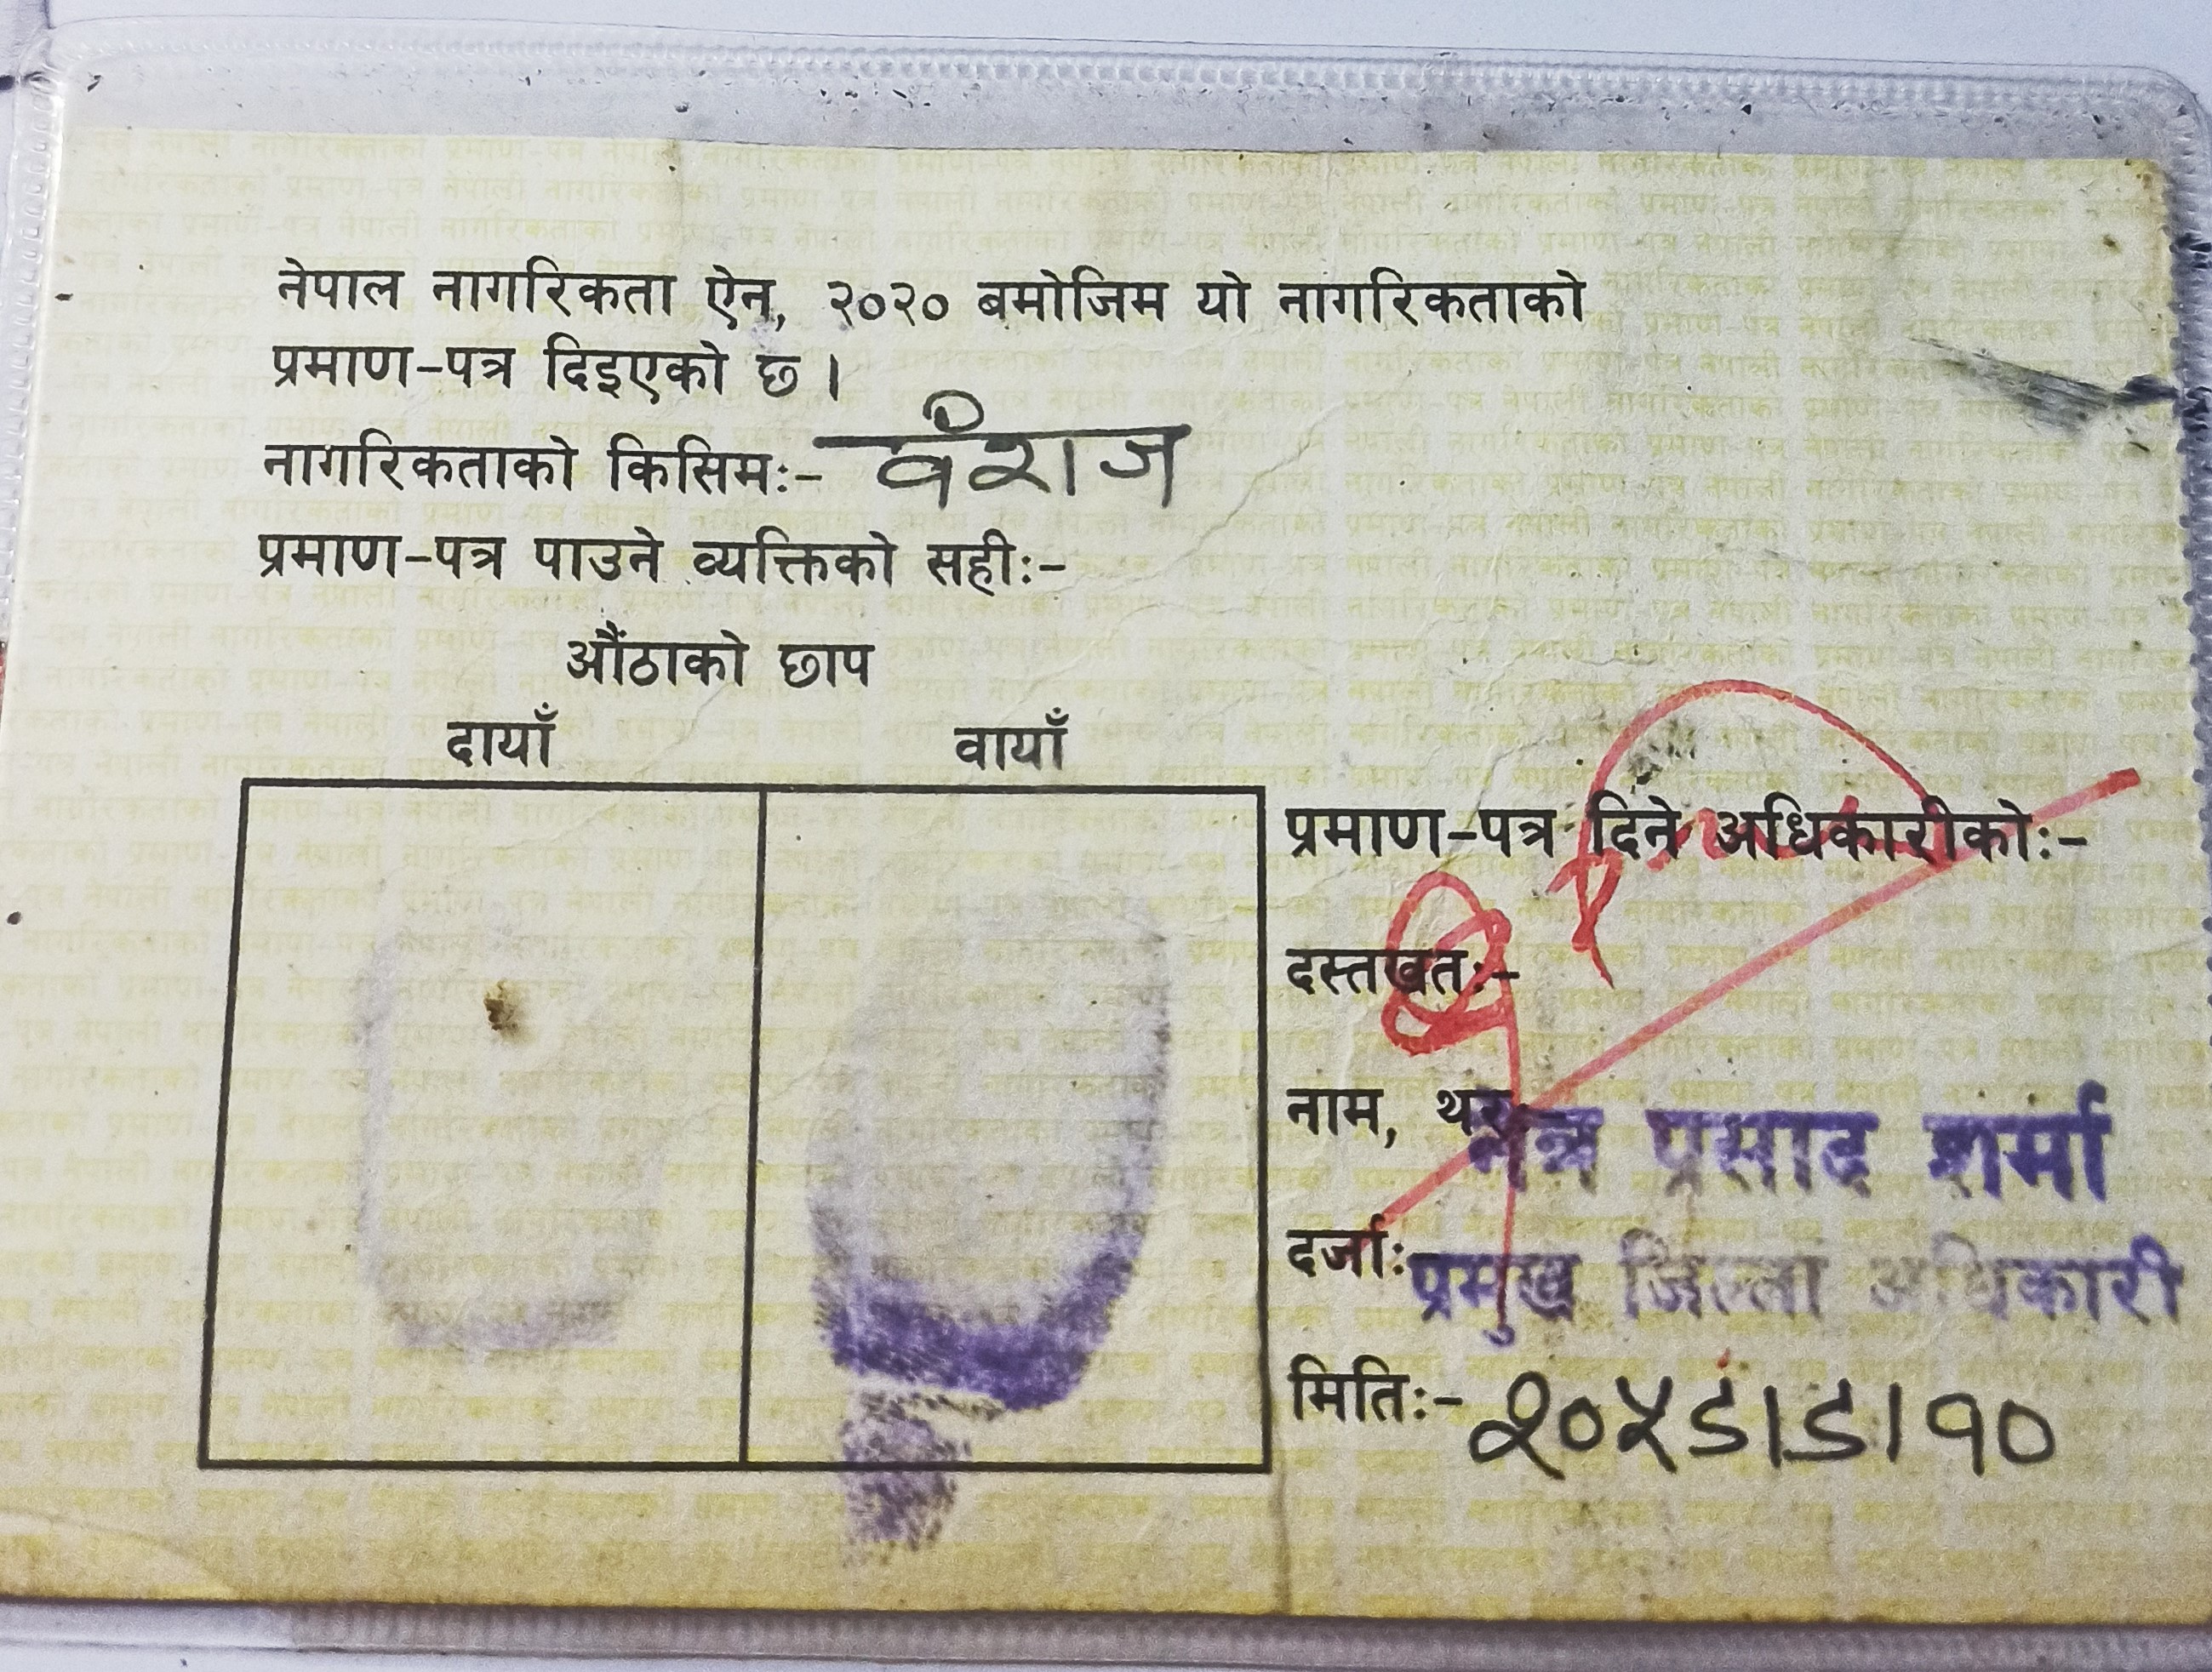 नेपाल नागरिकता ऐन, २०२० बमोजिम यो नागरिकताको
प्रमाण-पत्र दिइएको छ ।
नागरिकताको किसिमः- वंशज
प्रमाण-पत्र पाउने व्यक्तिको सहीः-
औंठाको छाप
दायाँ वायाँ
प्रमाण-पत्र दिने अधिकारीकोः-
दस्तखतः-
नाम, थर प्रसाद शर्मा
दर्जाः प्रमुख जिल्ला अधिकारी
मितिः- २०५८।८।१०